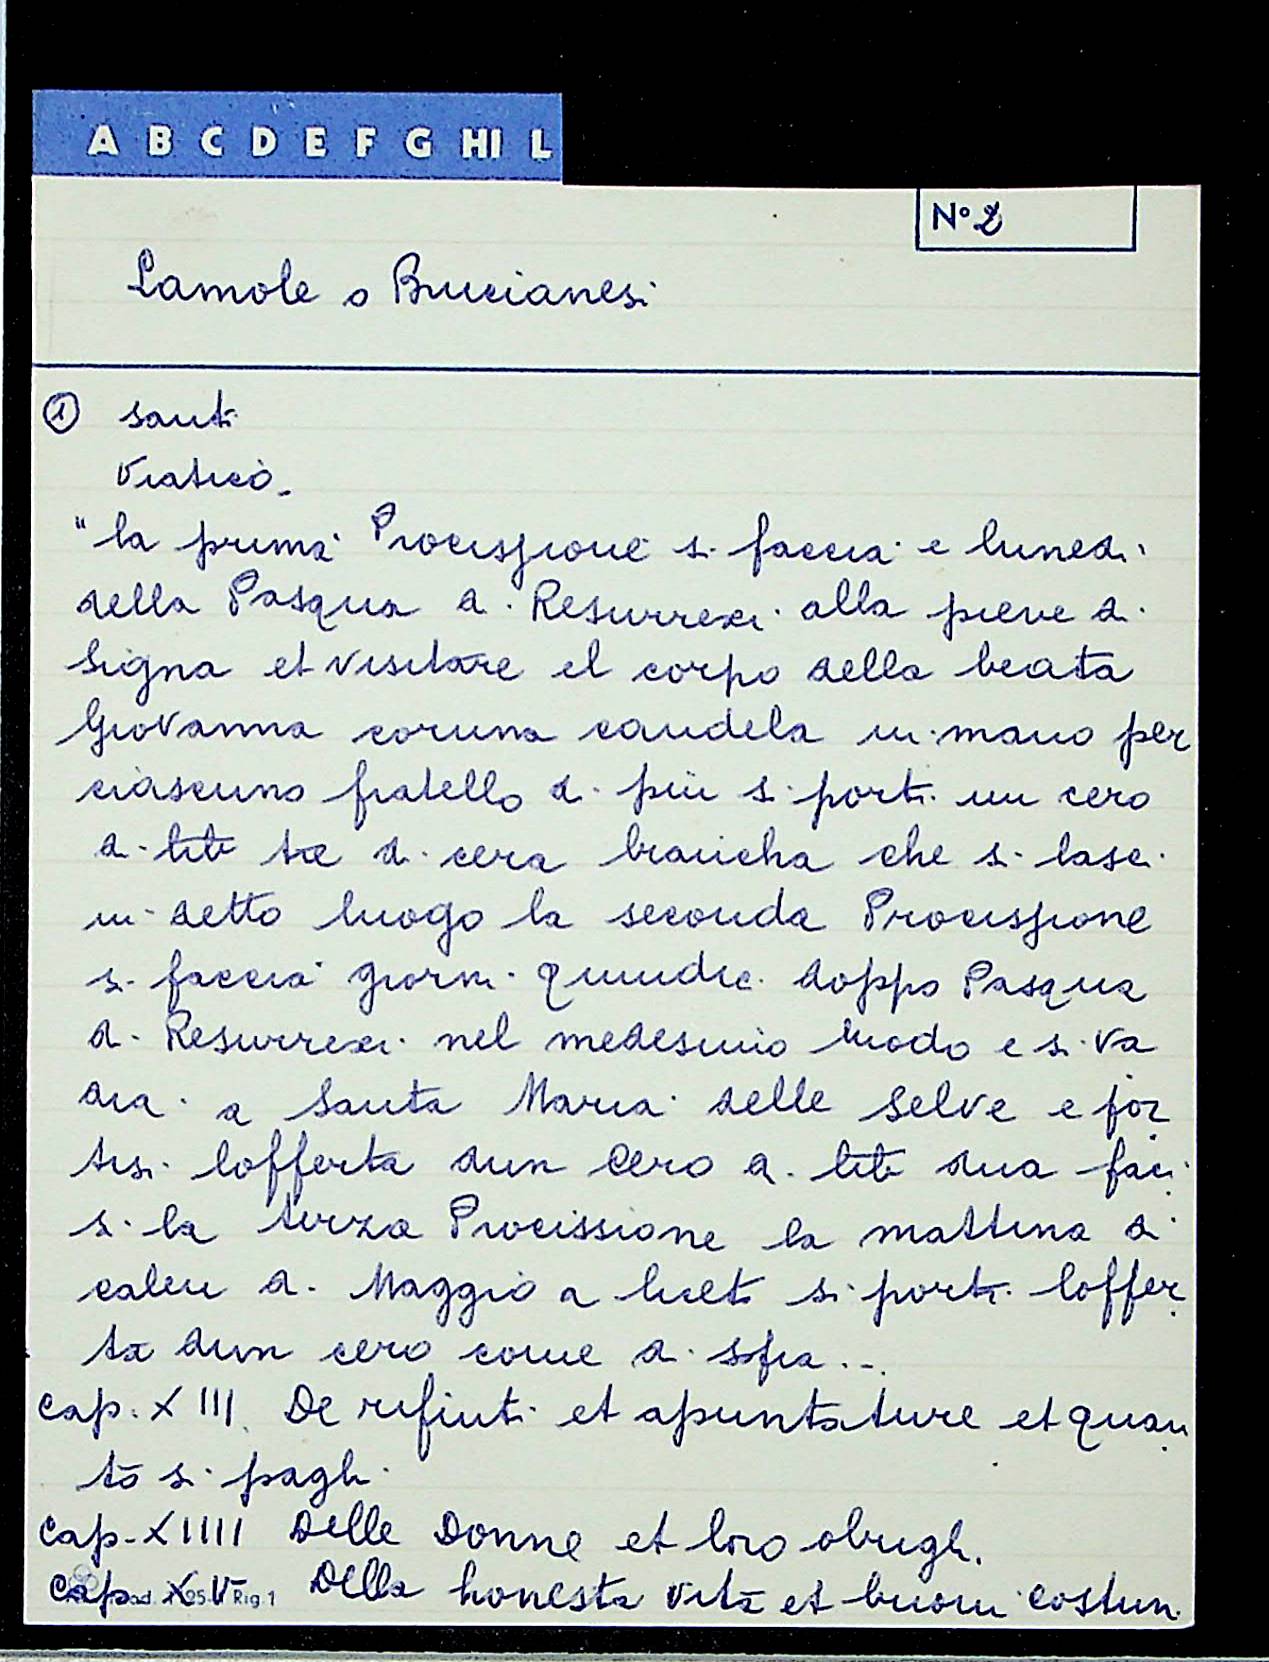 A B C D E F G HI L
N° 2
Lamole o Brucianesi
① santi
Viatico.
"la prima Processione si faccia e lunedi
della Pasqua di Resurrexi alla pieve di
Signa et visitare el corpo della beata
Giovanna con una candela in mano per
ciascuno fratello di più si porti un cero
di libb tre di cera biancha che si lasci
in detto luogo la seconda Processione
si faccia giorni quindic. doppo Pasqua
di Resurrexi nel medesimo modo e si va
dia a Santa Maria delle Selve e por
tisi lofferta dun Cero di libb dua faci
si la terza Processione la mattina di
calen di Maggio a lilet si porti loffer
ta dun cero come di sopra...
Cap. XIII De rifiuti et apuntature et quan
to si paghi
Cap. XIIII Delle Donne et loro obrigh.
Cap XV Della honesta vita et buoni costum
Rig. 1